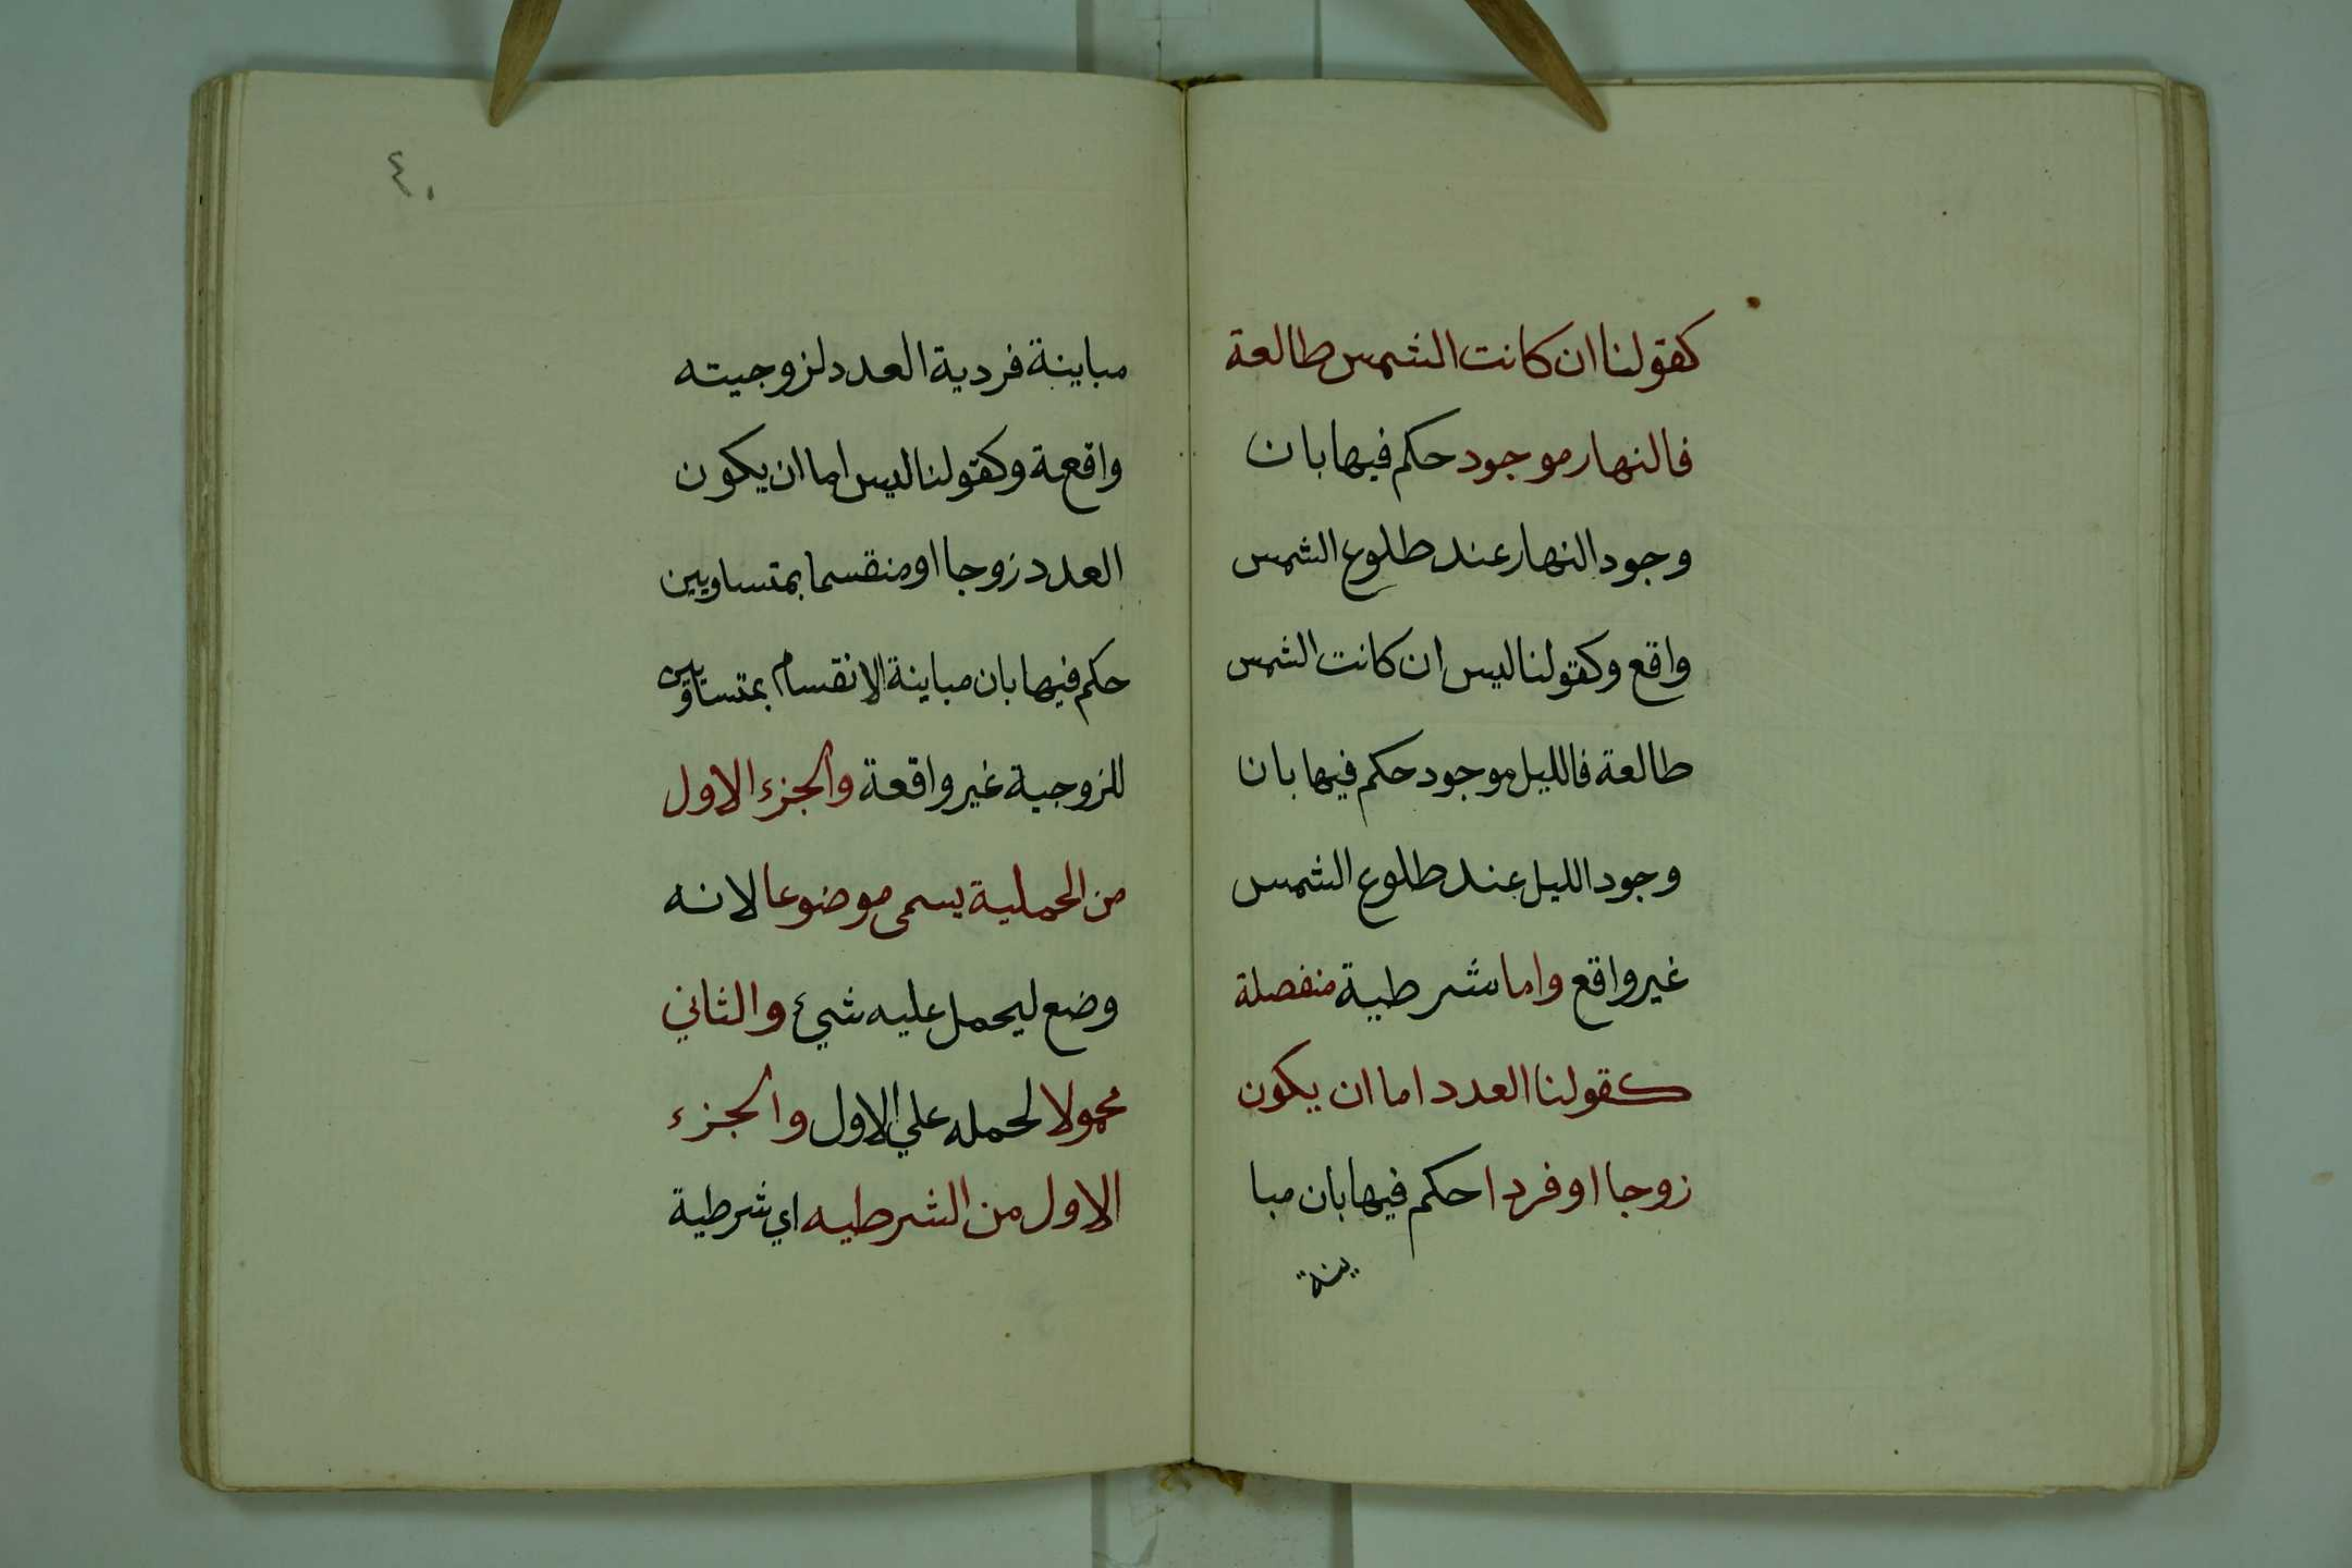 كقولنا ان كانت الشمس طالعة
فالنهار موجود حكم فيها بان
وجود النهار عند طلوع الشمس
واقع وكقولنا ليس ان كانت الشمس
طالعة فالليل موجود حكم فيها بان
وجود الليل عند طلوع الشمس
غير واقع واما شرطية منفصلة
كقولنا العدد اما ان يكون
زوجا او فردا حكم فيها بان مبا
ينة
٤٠
مباينة فردية العدد لزوجيته
واقعة وكقولنا ليس اما ان يكون
العدد زوجا او منقسما بمتساويين
حكم فيها بان مباينة الانقسام بمتساويين
للزوجية غير واقعة والجزء الاول
من الحملية يسمى موضوعا لانه
وضع ليحمل عليه شيء والثاني
محمولا لحمله علي الاول والجزء
الاول من الشرطيه اي شرطية